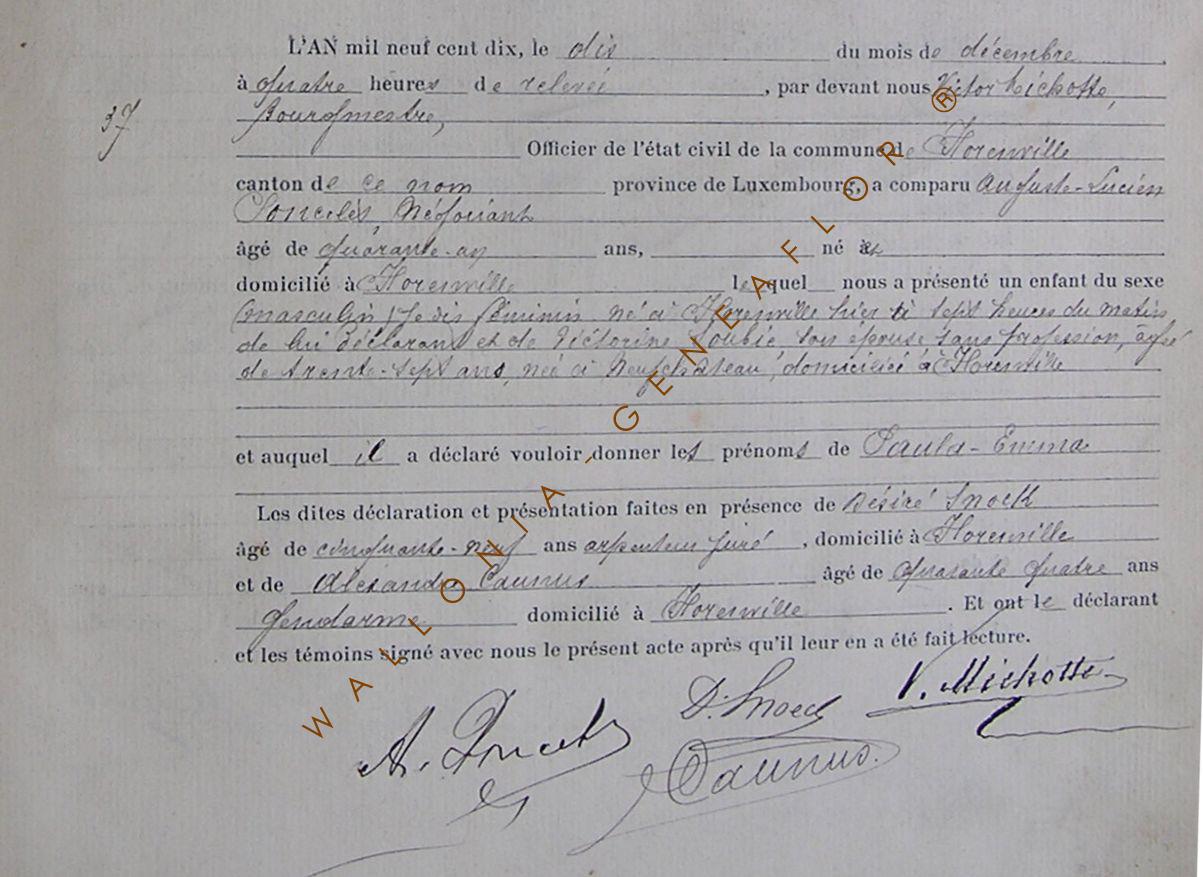 L'AN mil neuf cent dix, le dix du mois de décembre
à quatre heures de relevée, par devant nous Victor Michotte,
37
Bourgmestre,
Officier de l'état civil de la commune de Florenville
canton de ce nom province de Luxembourg, a comparu Auguste-Lucien
Négociant
âgé de quarante-un ans, né à
domicilié à Florenville lequel nous a présenté un enfant du sexe
(masculin) je dis féminin né à Florenville hier à sept heures du matin,
de lui déclarant et de Victorine son épouse sans profession, âgée
de trente-sept ans, née à Neufchâteau, domiciliée à Florenville
et auquel il a déclaré vouloir donner les prénoms de Paula-Emma
Les dites déclaration et présentation faites en présence de Désiré Snoeck
âgé de cinquante-neuf ans arpenteur juré, domicilié à Florenville
et de Alexandre Caunus âgé de quarante quatre ans
Gendarme domicilié à Florenville. Et ont le déclarant
et les témoins signé avec nous le présent acte après qu'il leur en a été fait lecture.
A. Poncelet D. Snoeck V. Michotte
Caunus.
WALLONIA-GENEAFLOR ®